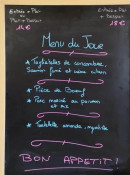 Entrée + Plat
ou
Plat + Dessert
14€
Entrée + Plat
+ Dessert
18€
Menu du Jour
* Tagliatelles de concombre,
Saumon fumé et crème citron
* Pièce de Boeuf
* Parc
au parmesan
et riz
* Tartelette amande, myrtille
BON APPETIT!